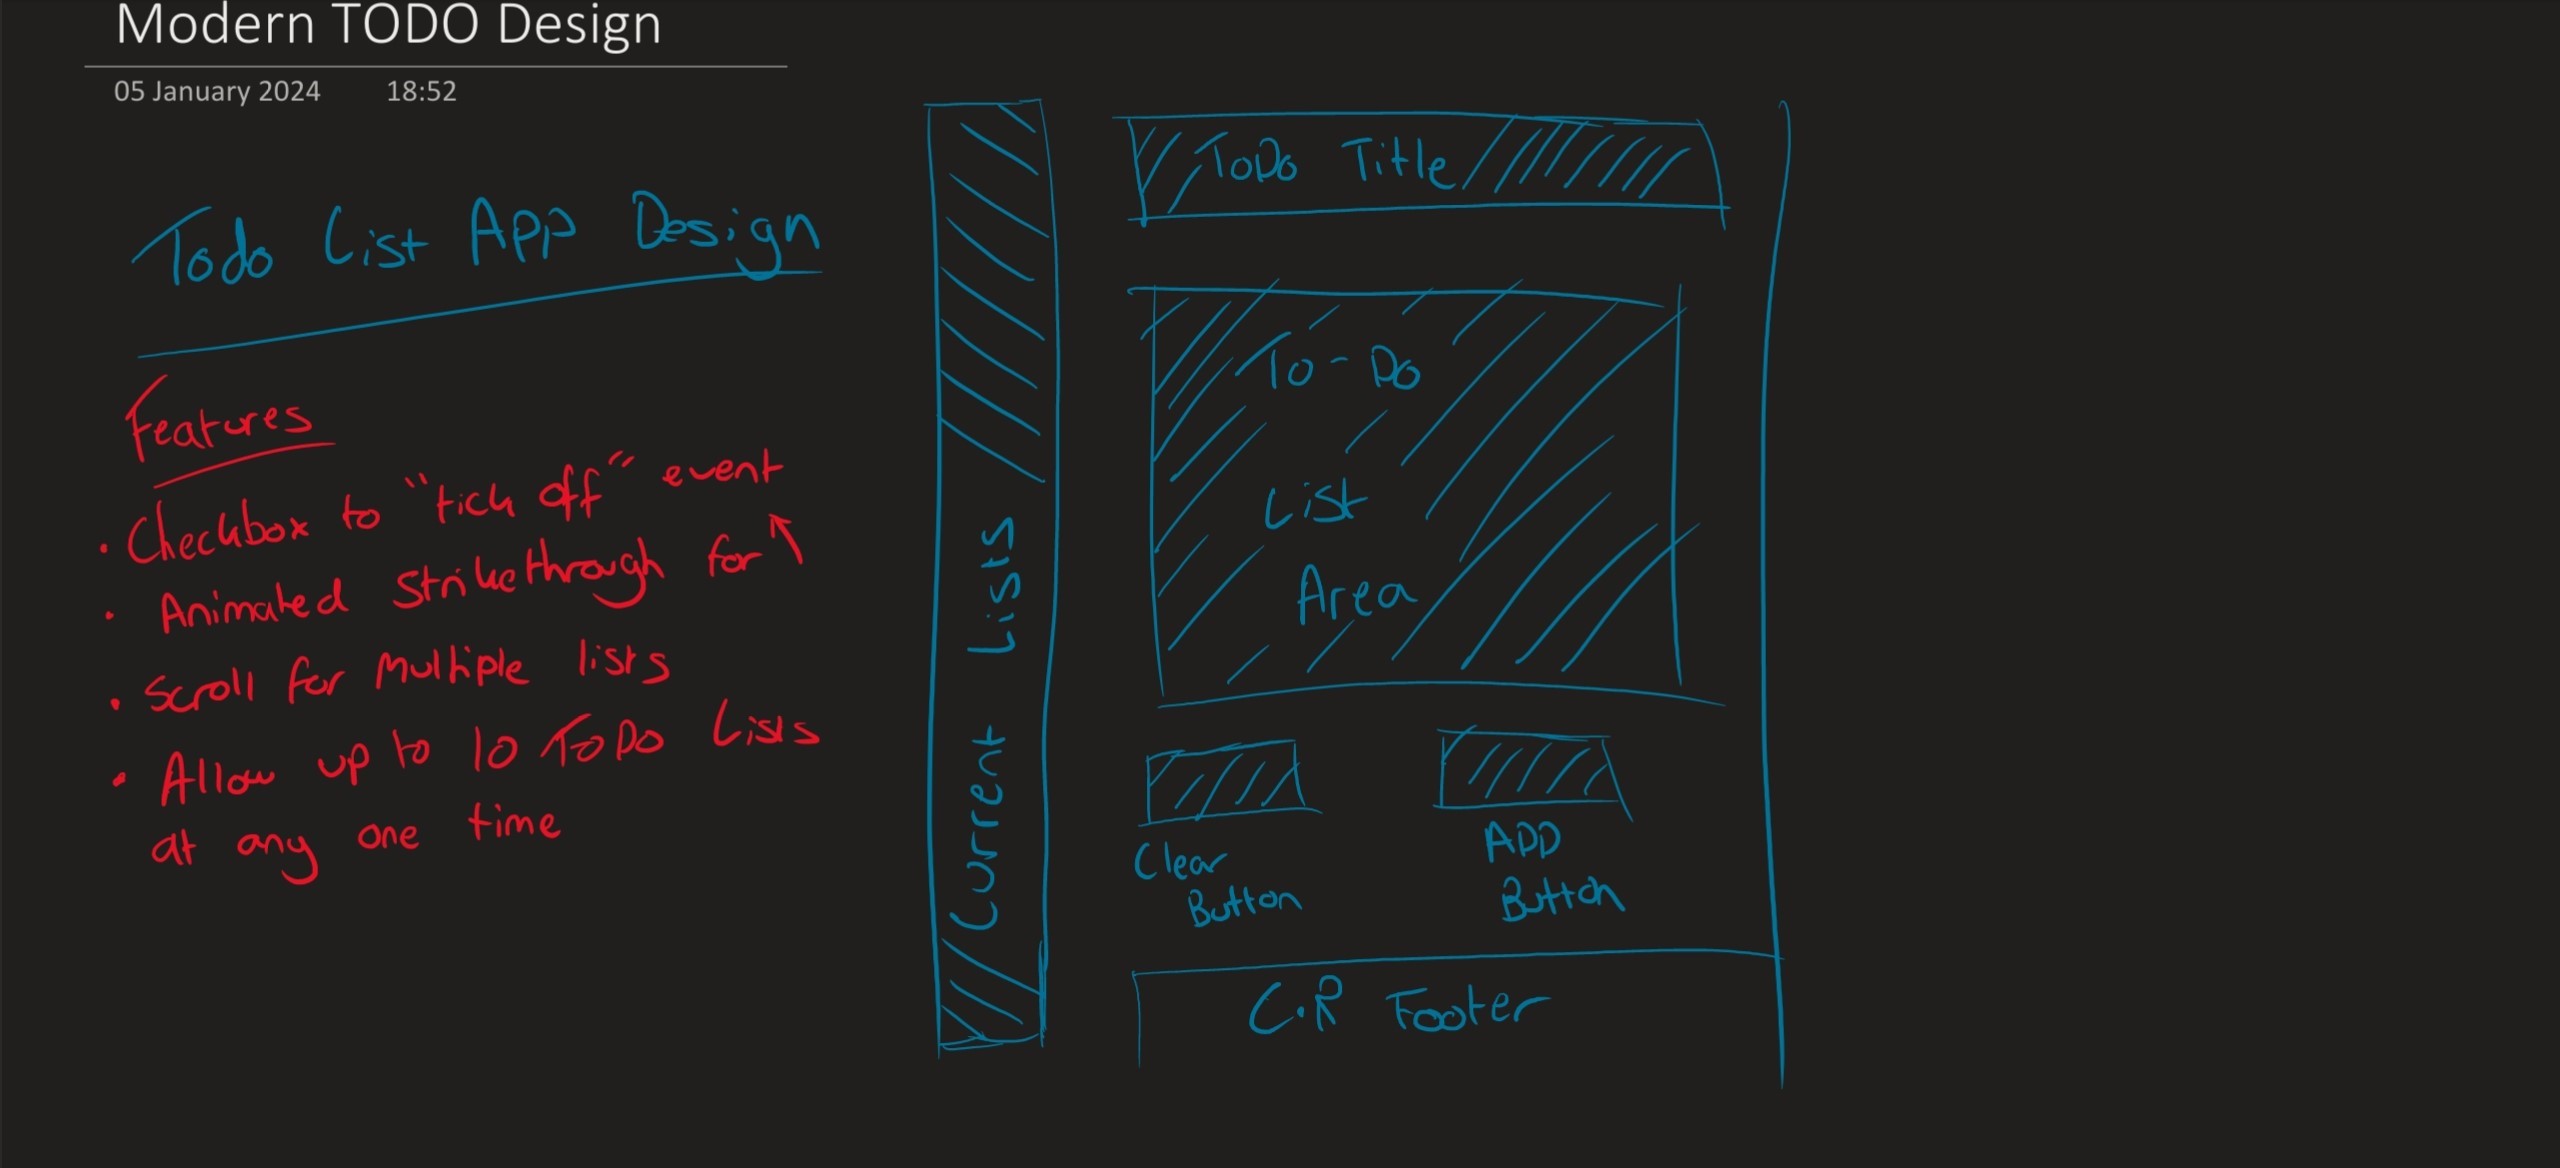 Modern TODO Design
05 January 2024 18:52
Todo List App Design
Features
• Checkbox to "tick off" event
• Animated Strikethrough for ↑
• Scroll for Multiple lists
• Allow up to 10 ToDo Lists
at any one time
Current Lists
ToDo Title
To-Do
List
Area
Clear
Button
ADD
Button
C.R Footer